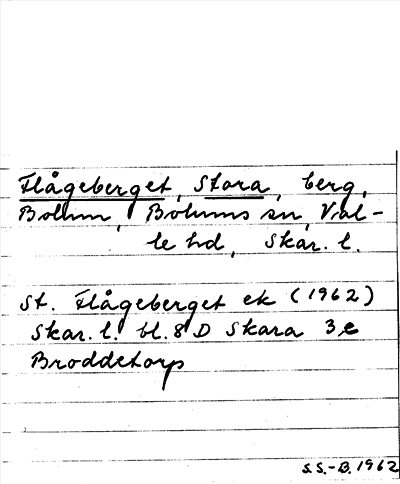 Flågeberget, Stora, berg,
Bolum, Bolums sn, Val-
le hd, Skar. l.
St. Flågeberget ek (1962)
Skar. l. bl. 8 D Skara 3e
Broddetorp
S.S.-B. 1962